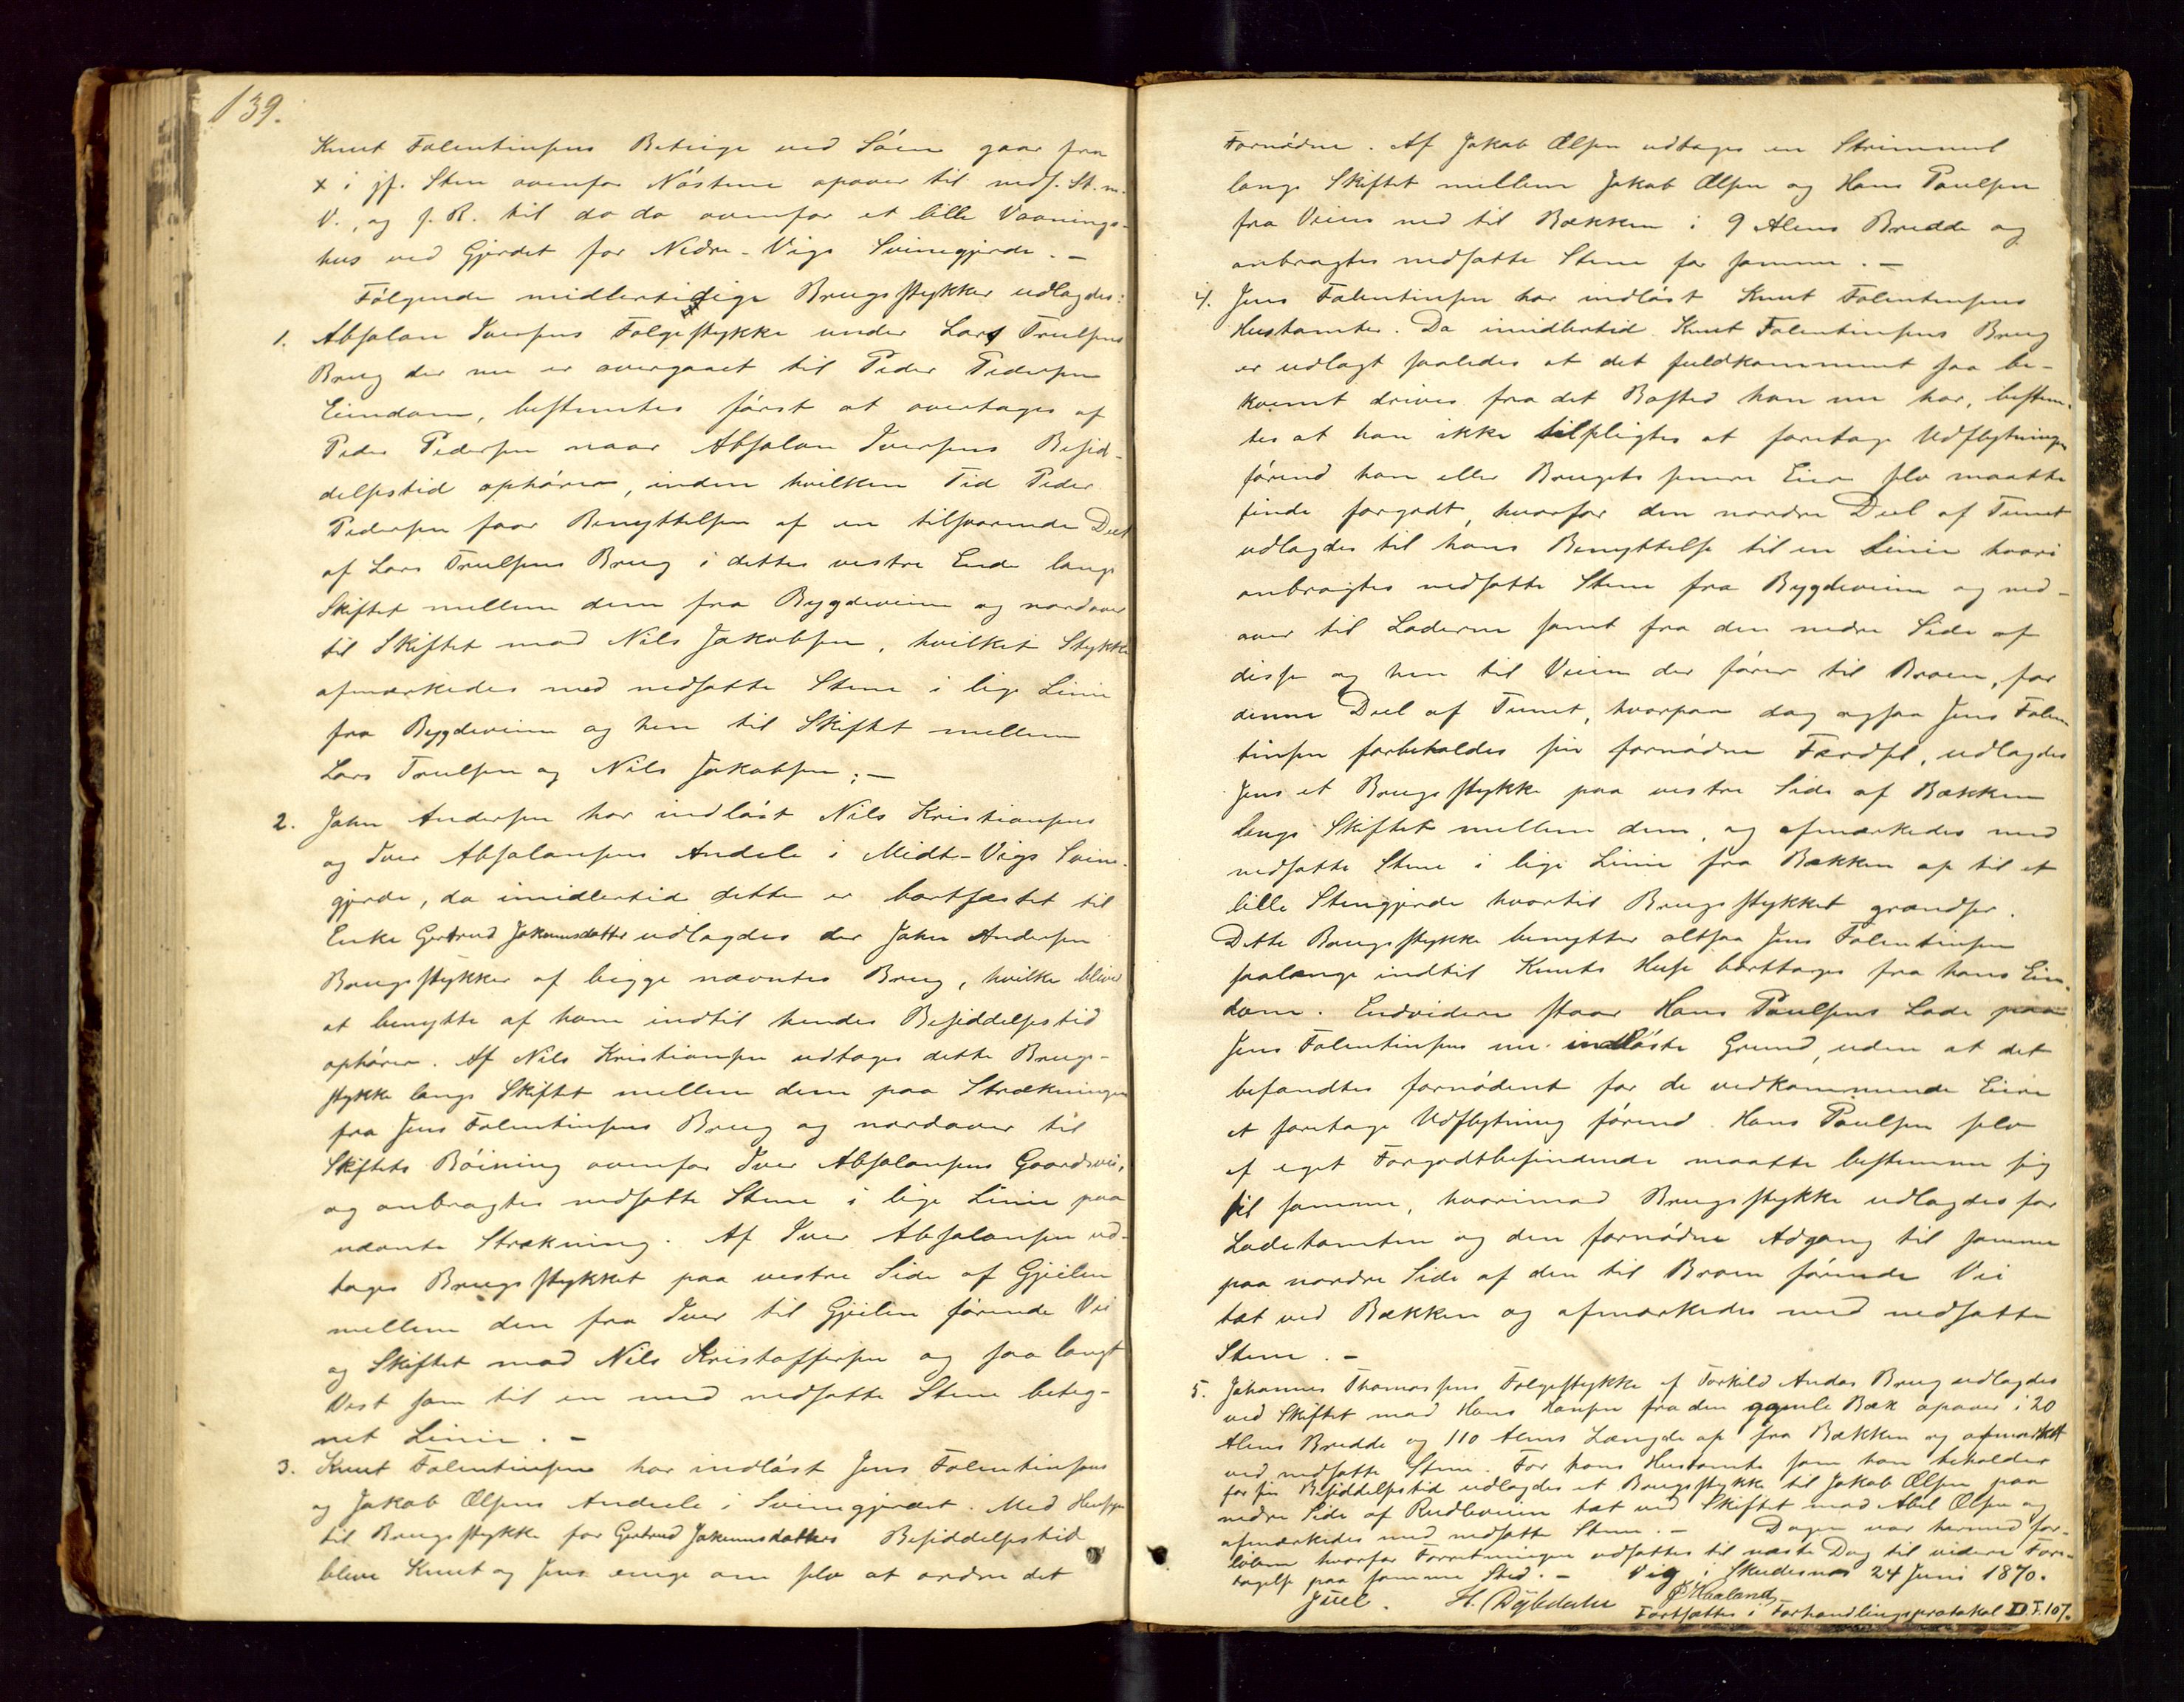 139.
Knut Falentinsens Beteige ved Söen gaar fra
x i jf. Sten ovenfor Nöstene opover til neds. St. m.
V., og f. R. til do do ovenfor et lille Vaanings-
hus ved Gjerdet for Nedre-Vigs Svinegjerde. –
Fölgende midlertidige Brugsstykker udlagdes:
1. Absalon Iversens Folgestykke under Lars Trulsens
Brug der nu er overgaaet til Peder Pedersen
Eiendom, bestemtes först at overtages af
Peder Pedersen naar Absalon Iversens Besid-
delsestid ophörer, inden hvilken Tid Peder
Pedersen faar Benyttelsen af en tilsvarende Deel
af Lars Trulsens Brug i dettes vestre Ende langs
Skiftet mellem dem fra Bygdeveien og nordover
til Skiftet mod Nils Jakobsen, hvilket Stykke
afmærkedes med nedsatte Stene i lige Linie
fra Bygdeveien og hen til Skiftet mellem
Lars Trulsen og Nils Jakobsen; –
2. John Andersen har indlöst Nils Kristiansens
og Iver Absalonsens Andele i Midt-Vigs Svine-
gjerde, da imidlertid dette er bortfæstet til
Enke Gertrud Jakumsdatter udlagdes der John Andersen
Brugsstykker af begge nævntes Brug, hvilke bliver
at benytte af ham indtil hendes Besiddelsestid
ophörer. Af Nils Kristiansen udtages dette Brugs-
stykke langs Skiftet mellem dem paa Strækningen
fra Jens Falentinsens Brug og nordover til
Skiftets Böining ovenfor Iver Absalonsens Gaardsvei,
og anbragtes nedsatte Stene i lige Linie paa
nævnte Strækning. Af Iver Absalonsen ud-
tages Brugsstykket paa vestre Side af Gjeilen
mellem den fra Iver til Gjeilen förende Vei
og Skiftet mod Nils Kristoffersen og saa langt
Vest som til en med nedsatte Stene beteg-
net Linie. –
3. Knut Falentinsen har indlöst Jens Falentinsens
og Jakob Olsens Andeele i Svinegjerdet. Med Hensyn
til Brugsstykke for Gertrud Jakumsdatters Besiddelsestid
bleve Knut og Jens enige om selv at ordne det
Fornödne. Af Jakob Olsen udtages en Strimmel
langs Skiftet mellem Jakob Olsen og Hans Paulsen
fra Veien ned til Bækken i 9 Alens Bredde og
anbragtes nedsatte Stene for samme. –
4. Jens Falentinsen har indlöst Knut Falentinsens
Hustomter. Da imidlertid Knut Falentinsens Brug
er udlagt saaledes at det fuldkomment saa be-
kvemt drives fra det Bosted han nu har, bestem-
tes at han ikke tilpligtes at foretage Udflytningen
förend han eller Brugets senere Eier selv maatte
finde forgodt, hvorfor den nordre Deel af Tunet
udlagdes til hans Benyttelse til en Linie hvori
anbragtes nedsatte Stene fra Bygdeveien og ned-
over til Laderne samt fra den nedre Side af
disse og hen til Veien der förer til Broen, for
denne Deel af Tunet, hvorpaa dog ogsaa Jens Falen-
tinsen forbeholdes sin fornödne Færdsel, udlagdes
Jens et Brugsstykke paa vestre Side af Bækken
langs Skiftet mellem dem, og afmærkedes med
nedsatte Stene i lige Linie fra Bækken op til et
lille Stengjerde hvortil Brugsstykket grændser.
Dette Brugsstykke benytter altsaa Jens Falentinsen
saalænge indtil Knuts Huse borttages fra hans Eien-
dom. Endvidere staar Hans Paulsens Lade paa
Jens Falentinsens nu indlöste Grund, uden at det
befandtes fornödent for de vedkommende Eiere
at foretage Udflytning förend Hans Paulsen selv
af eget Forgodtbefindende maatte bestemme sig
til samme, hvorimod Brugsstykke udlagdes for
Ladetomten og den fornödne Adgang til samme
paa nordre Side af den til Broen förende Vei
tæt ved Bækken og afmærkedes med nedsatte
Stene. –
5. Johannes Thomassens Folgestykke af Torkild Andas Brug udlagdes
ved Skiftet mod Hans Hansen fra den gamle Bæk opover i 20
Alens Bredde og 110 Alens Længde op fra Bækken og afmærket
ved nedsatte Stene. For hans Hustomte som han beholder
for sin Besiddelsestid udlagdes et Brugsstykke til Jakob Olsen paa
nedre Side af Rudleveien tæt ved Skiftet mod Abel Olsen og
afmærkedes med nedsatte Stene. – Dagen var hermed for-
löben hvorfor Forretningen udsattes til næste Dag til videre Fore-
tagelse paa samme Sted. – Vig i Skudesnæs 24 Juni 1870.
Juel. H. Dybdahl Ø Haaland
Fortsættes i Forhandlingsprotokol II. F. 107.